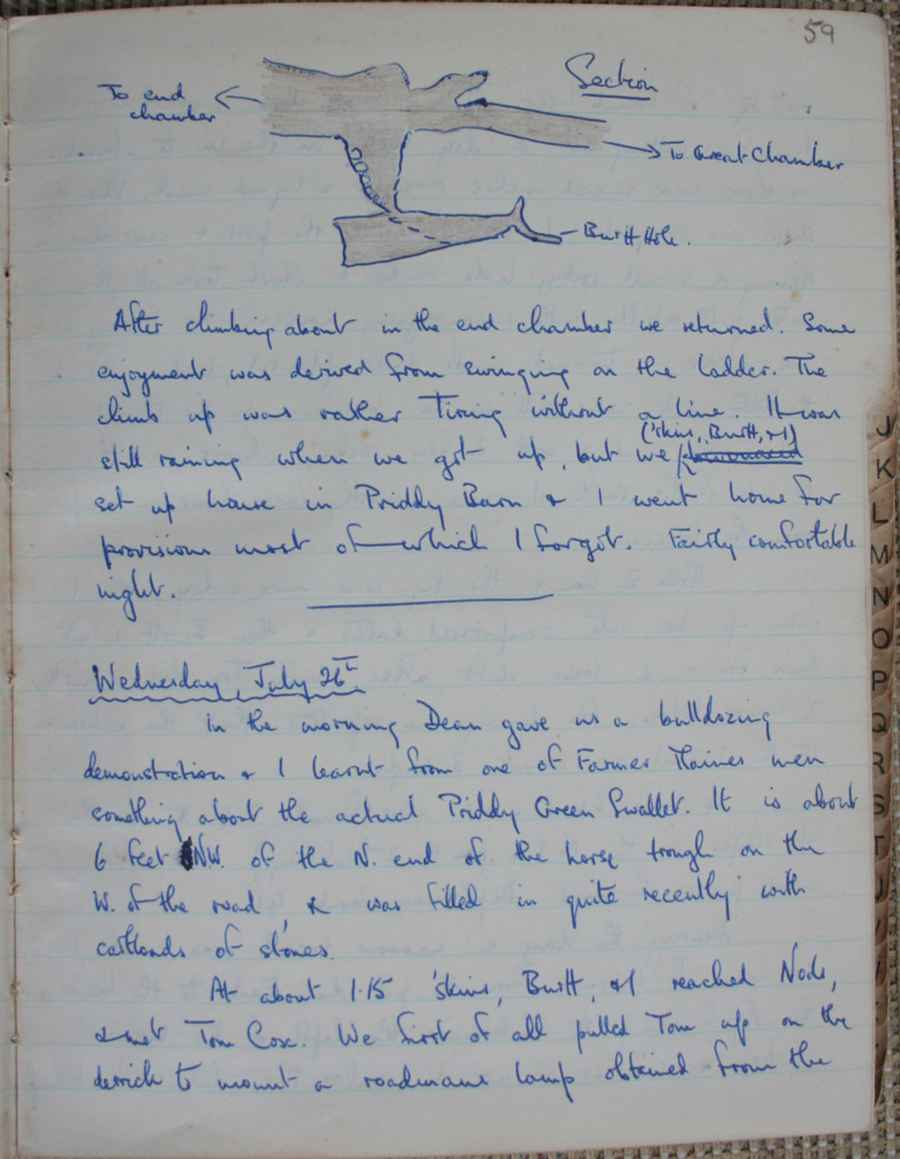 59
Section
To end
chamber
To Great Chamber
Burtt Hole.
After climbing about in the end chamber we returned. Some
enjoyment was derived from swinging on the ladder. The
climb up was rather tiring without a line. It was
('skins, Burtt, & I)
still raining when we got up, but we
set up house in Priddy Barn & I went home for
provisions most of which I forgot. Fairly comfortable
night.
Wednesday, July 26th
In the morning Dean gave us a bulldozing
demonstration & I learnt from one of Farmer Maines men
something about the actual Priddy Green Swallet. It is about
6 feet NW. of the N. end of the horse trough on the
W. of the road, & was filled in quite recently with
cartloads of stones.
At about 1.15 'skins, Burtt, & I reached Nods,
& met Tom Cox. We first of all pulled Tom up on the
derrick to mount a roadmans lamp obtained from the
J
K
L
M
N
O
P
Q
R
S
T
U